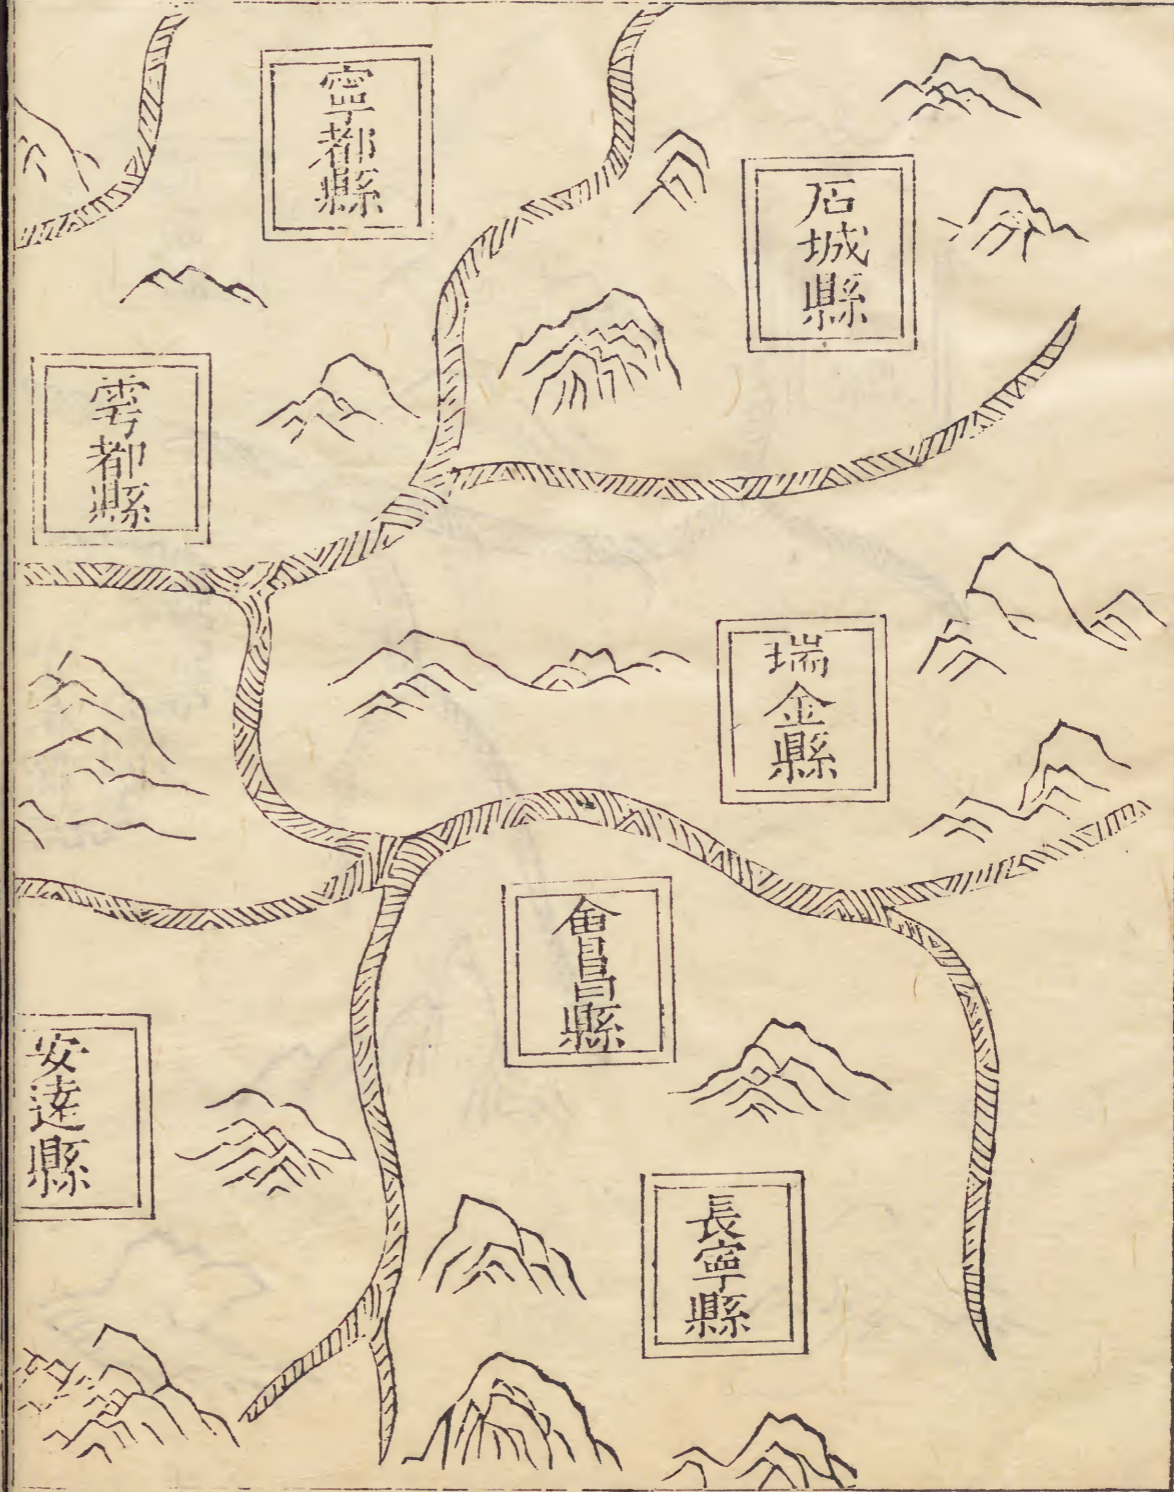 石城縣
寧都縣
雩都縣
瑞金縣
會昌縣
安遠縣
長寧縣